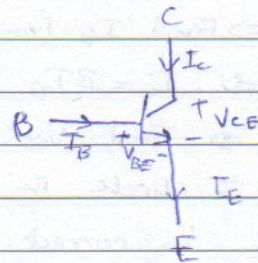 C
I_C
+
B
I_B
+ V_BE -
V_CE
-
I_E
E